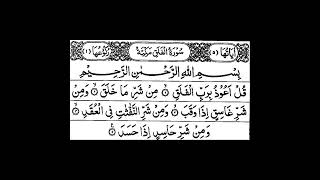 اٰيَاتُهَا (٥) سُوْرَةُ الْفَلَقِ مَدَنِيَّةٌ رُكُوْعُهَا (١)
بِسْمِ اللّٰهِ الرَّحْمٰنِ الرَّحِيْمِ
قُلْ اَعُوْذُ بِرَبِّ الْفَلَقِ ۙ مِنْ شَرِّ مَا خَلَقَ ۙ وَمِنْ
شَرِّ غَاسِقٍ اِذَا وَقَبَ ۙ وَمِنْ شَرِّ النَّفّٰثٰتِ فِى الْعُقَدِ ۙ
وَمِنْ شَرِّ حَاسِدٍ اِذَا حَسَدَ